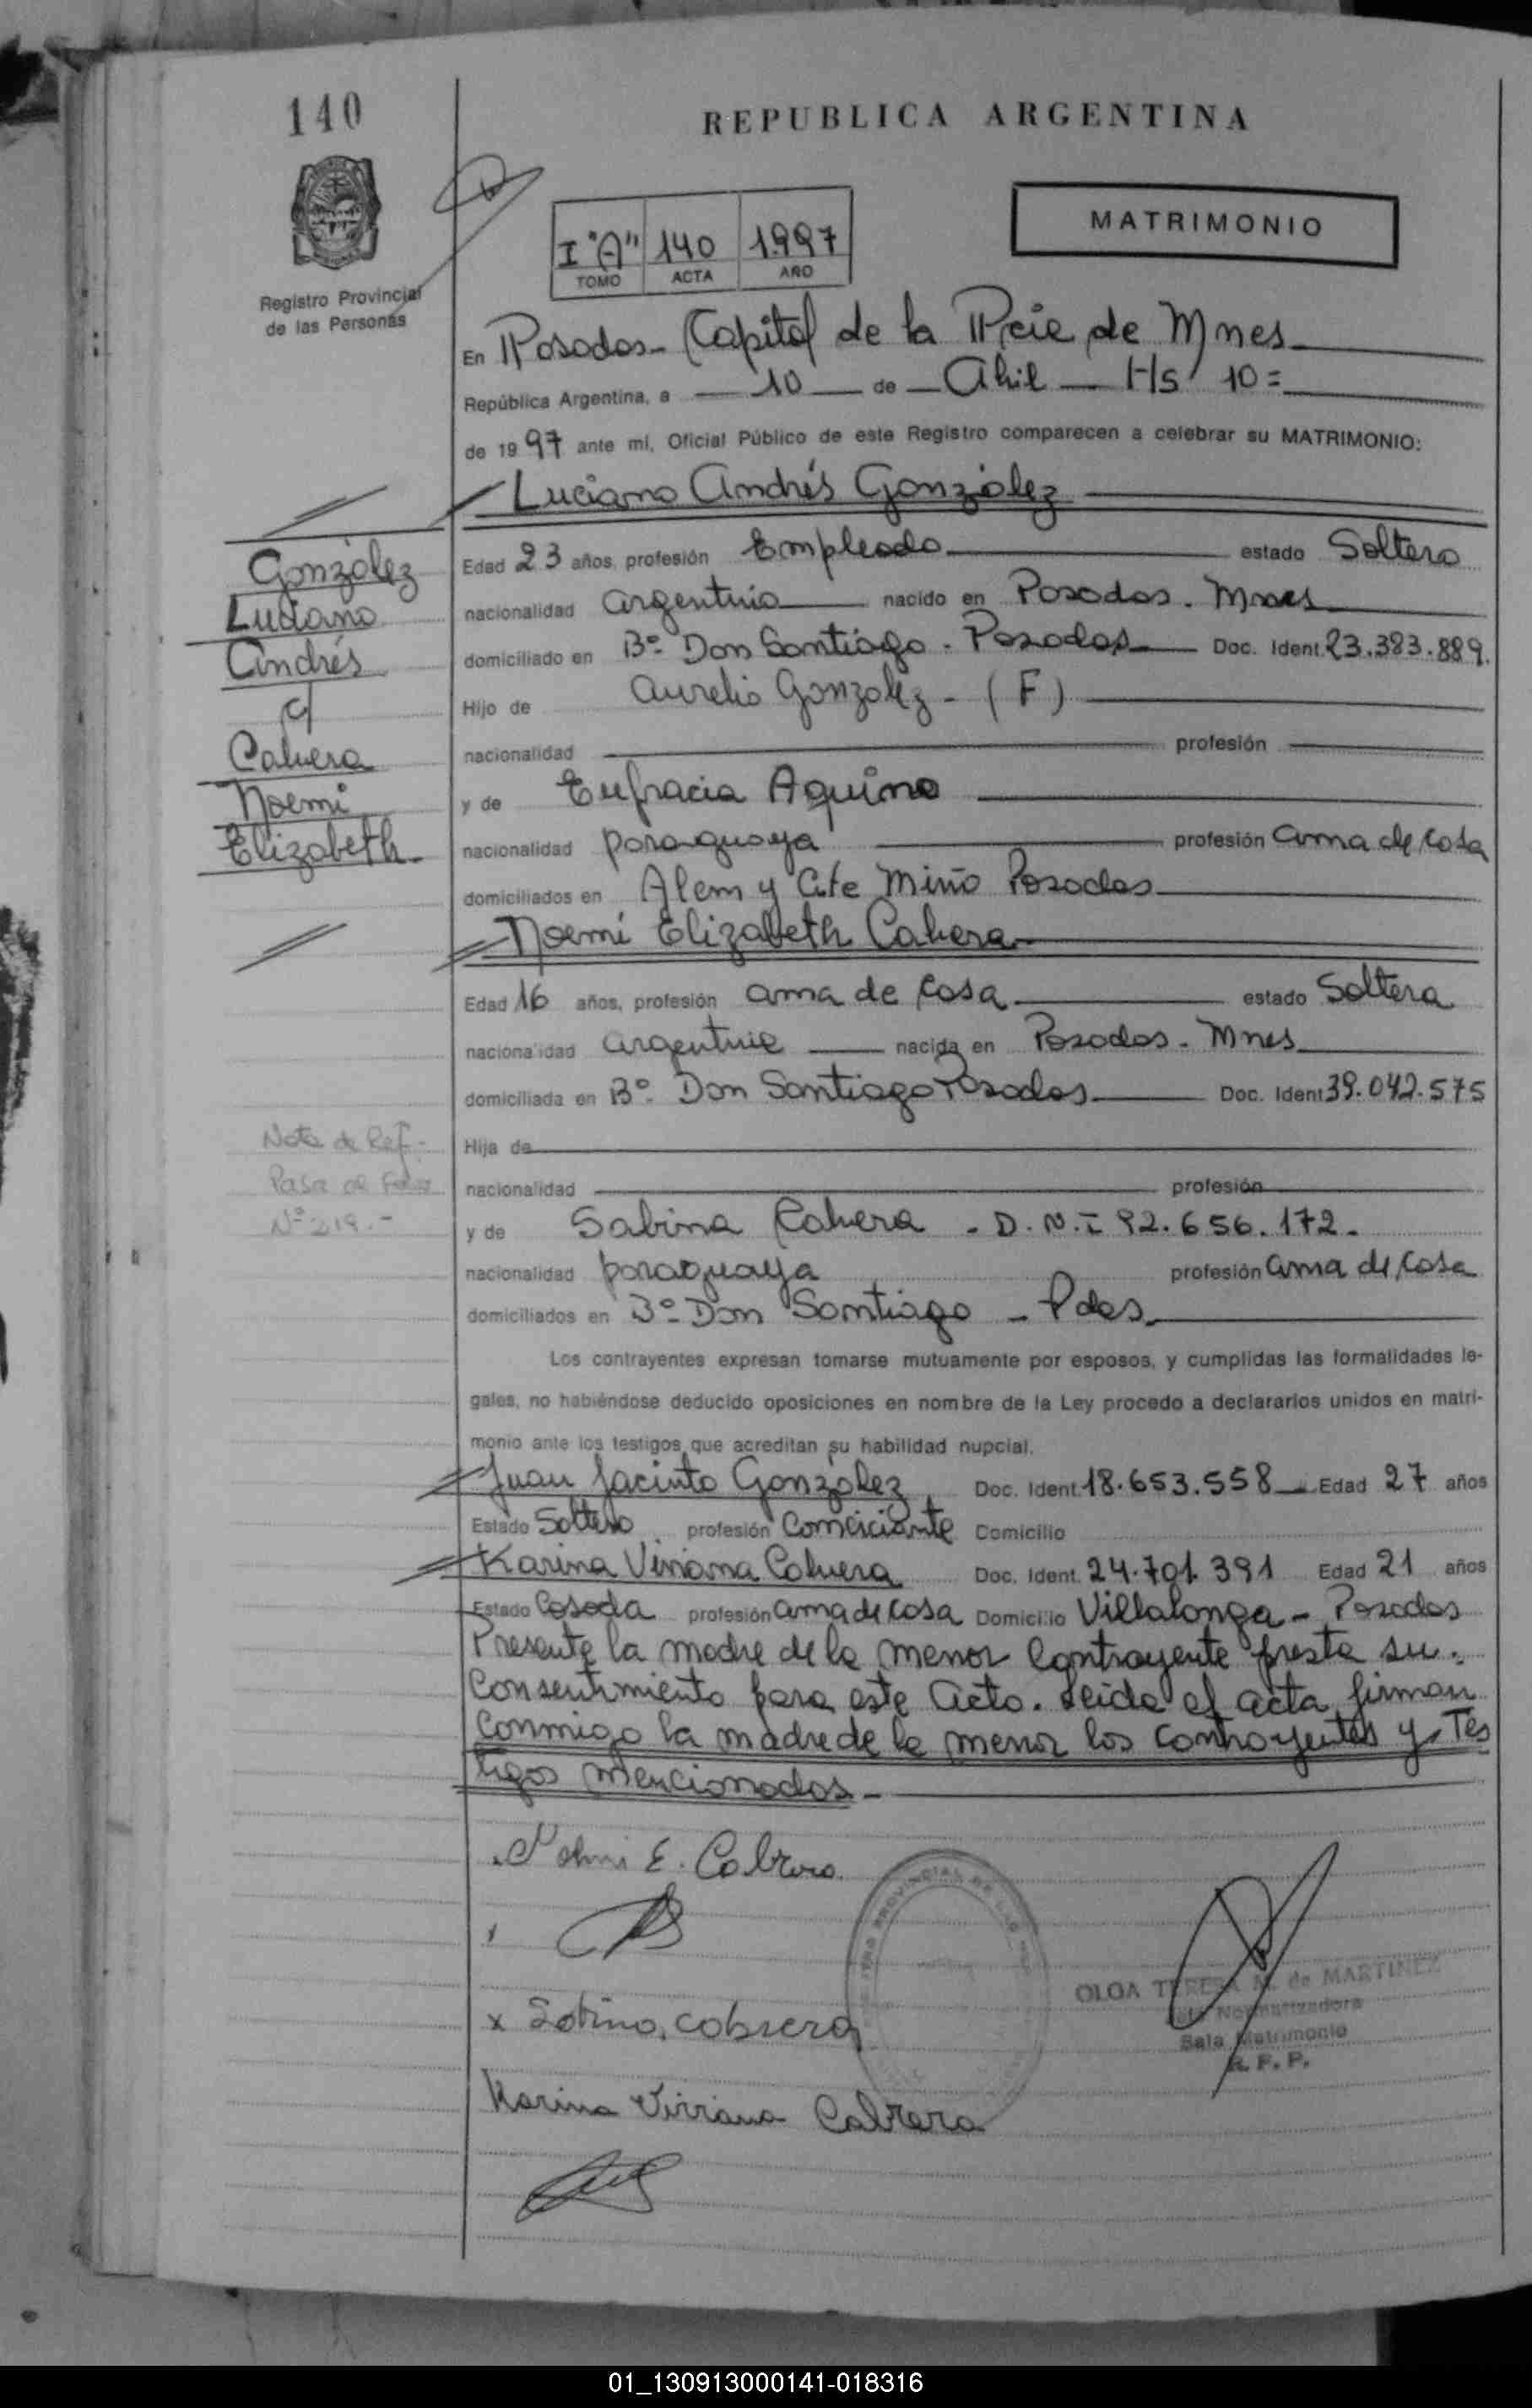 140
REPUBLICA ARGENTINA
MATRIMONIO
I "A" 140 1997
TOMO ACTA AÑO
Registro Provincial
de las Personas
En Posadas - Capital de la Pcia de Mnes
República Argentina, a 10 de Abril Hs 10=
de 1997 ante mi, Oficial Público de este Registro comparecen a celebrar su MATRIMONIO:
Luciano Andrés González
González
Luciano
Andrés
c/
Cabrera
Noemi
Elizabeth
Edad 23 años, profesión Empleado estado Soltero
nacionalidad argentina nacido en Posadas. Mnes
domiciliado en Bº Don Santiago - Posadas Doc. Ident. 23.383.889.
Hijo de Aurelio González - (F)
nacionalidad profesión
y de Eufracia Aquino
nacionalidad paraguaya profesión ama de casa
domiciliados en Alem y Cte Miño Posadas
Noemí Elizabeth Cabrera
Edad 16 años, profesión ama de casa estado Soltera
nacionalidad argentina nacida en Posadas - Mnes
domiciliada en Bº Don Santiago Posadas Doc. Ident 39.042.575
Hija de
nacionalidad profesión
y de Sabina Cabrera - D.N.I 92.656.172.
nacionalidad paraguaya profesión ama de casa
domiciliados en Bº Don Santiago - Pdas.
Nota de Ref.-
Pasa al Folio
Nº 219.-
Los contrayentes expresan tomarse mutuamente por esposos, y cumplidas las formalidades le-
gales, no habiéndose deducido oposiciones en nombre de la Ley procedo a declararlos unidos en matri-
monio ante los testigos que acreditan su habilidad nupcial.
Juan Jacinto González Doc. Ident. 18.653.558 Edad 27 años
Estado Soltero profesión Comerciante Domicilio
Karina Viviana Cabrera Doc. Ident. 24.701.391 Edad 21 años
Estado Casada profesión ama de casa Domicilio Villalonga - Posadas
Presente la madre de la menor contrayente presta su
consentimiento para este acto. Leida el acta firman
conmigo la madre de la menor los contrayentes y Tes
tigos mencionados
Noemi E. Cabrera
x Sabina, cabrera
Karina Viviana Cabrera
OLGA TERESA M. de MARTINEZ
Normatizadora
Sala Matrimonio
R. P. P.
01_130913000141-018316